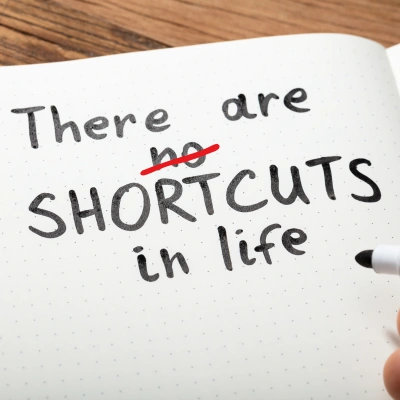 There are
no
SHORTCUTS
in life